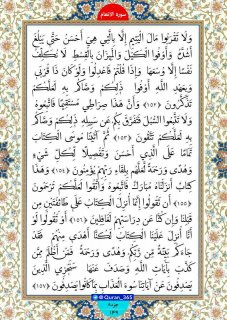 سورة الانعام
وَلَا تَقْرَبُوا مَالَ الْيَتِيمِ إِلَّا بِالَّتِي هِيَ أَحْسَنُ حَتَّى يَبْلُغَ
أَشُدَّهُ وَأَوْفُوا الْكَيْلَ وَالْمِيزَانَ بِالْقِسْطِ لَا نُكَلِّفُ
نَفْسًا إِلَّا وُسْعَهَا وَإِذَا قُلْتُمْ فَاعْدِلُوا وَلَوْ كَانَ ذَا قُرْبَى
وَبِعَهْدِ اللَّهِ أَوْفُوا ذَلِكُمْ وَصَّاكُمْ بِهِ لَعَلَّكُمْ
تَذَكَّرُونَ (۱۵۲) وَأَنَّ هَذَا صِرَاطِي مُسْتَقِيمًا فَاتَّبِعُوهُ
وَلَا تَتَّبِعُوا السُّبُلَ فَتَفَرَّقَ بِكُمْ عَنْ سَبِيلِهِ ذَلِكُمْ وَصَّاكُمْ
بِهِ لَعَلَّكُمْ تَتَّقُونَ (۱۵۳) ثُمَّ آتَيْنَا مُوسَى الْكِتَابَ
تَمَامًا عَلَى الَّذِي أَحْسَنَ وَتَفْصِيلًا لِكُلِّ شَيْءٍ
وَهُدًى وَرَحْمَةً لَعَلَّهُمْ بِلِقَاءِ رَبِّهِمْ يُؤْمِنُونَ (۱۵۴) وَهَذَا
كِتَابٌ أَنْزَلْنَاهُ مُبَارَكٌ فَاتَّبِعُوهُ وَاتَّقُوا لَعَلَّكُمْ تُرْحَمُونَ
(۱۵۵) أَنْ تَقُولُوا إِنَّمَا أُنْزِلَ الْكِتَابُ عَلَى طَائِفَتَيْنِ مِنْ
قَبْلِنَا وَإِنْ كُنَّا عَنْ دِرَاسَتِهِمْ لَغَافِلِينَ (۱۵۶) أَوْ تَقُولُوا لَوْ
أَنَّا أُنْزِلَ عَلَيْنَا الْكِتَابُ لَكُنَّا أَهْدَى مِنْهُمْ فَقَدْ
جَاءَكُمْ بَيِّنَةٌ مِنْ رَبِّكُمْ وَهُدًى وَرَحْمَةٌ فَمَنْ أَظْلَمُ مِمَّنْ
كَذَّبَ بِآيَاتِ اللَّهِ وَصَدَفَ عَنْهَا سَنَجْزِي الَّذِينَ
يَصْدِفُونَ عَنْ آيَاتِنَا سُوءَ الْعَذَابِ بِمَا كَانُوا يَصْدِفُونَ (۱۵۷)
@Quran_365
۱۴۹